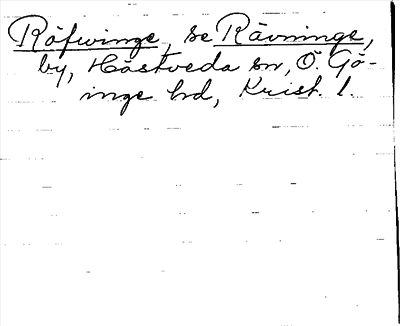 Räfwinge, se Rävninge,
by, Hästveda sn, Ö. Gö-
inge hd, Krist. l.